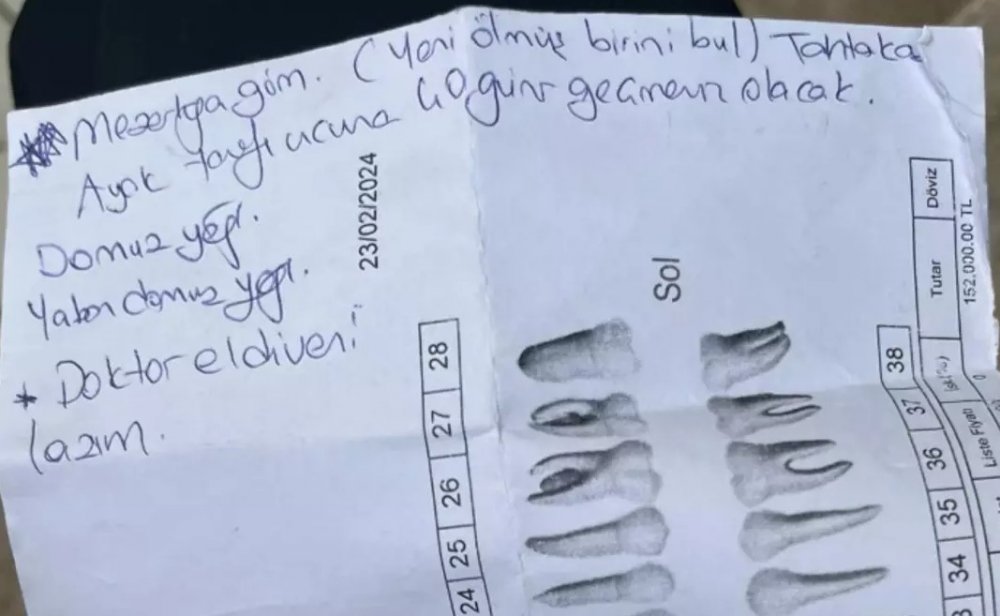 Mezarlığa göm. (Yeni ölmüş birini bul) Tahtaka
Ayak tarafı ucuna 40 gün geçmemiş olacak.
Domuz yağı.
Yaban domuz yağı.
* Doktor eldiveni
lazım.
23/02/2024
Sol
28
27
26
25
24
38
37
36
35
34
Döviz
Tutar
152.000.00 TL
Liste Fiyatı
0